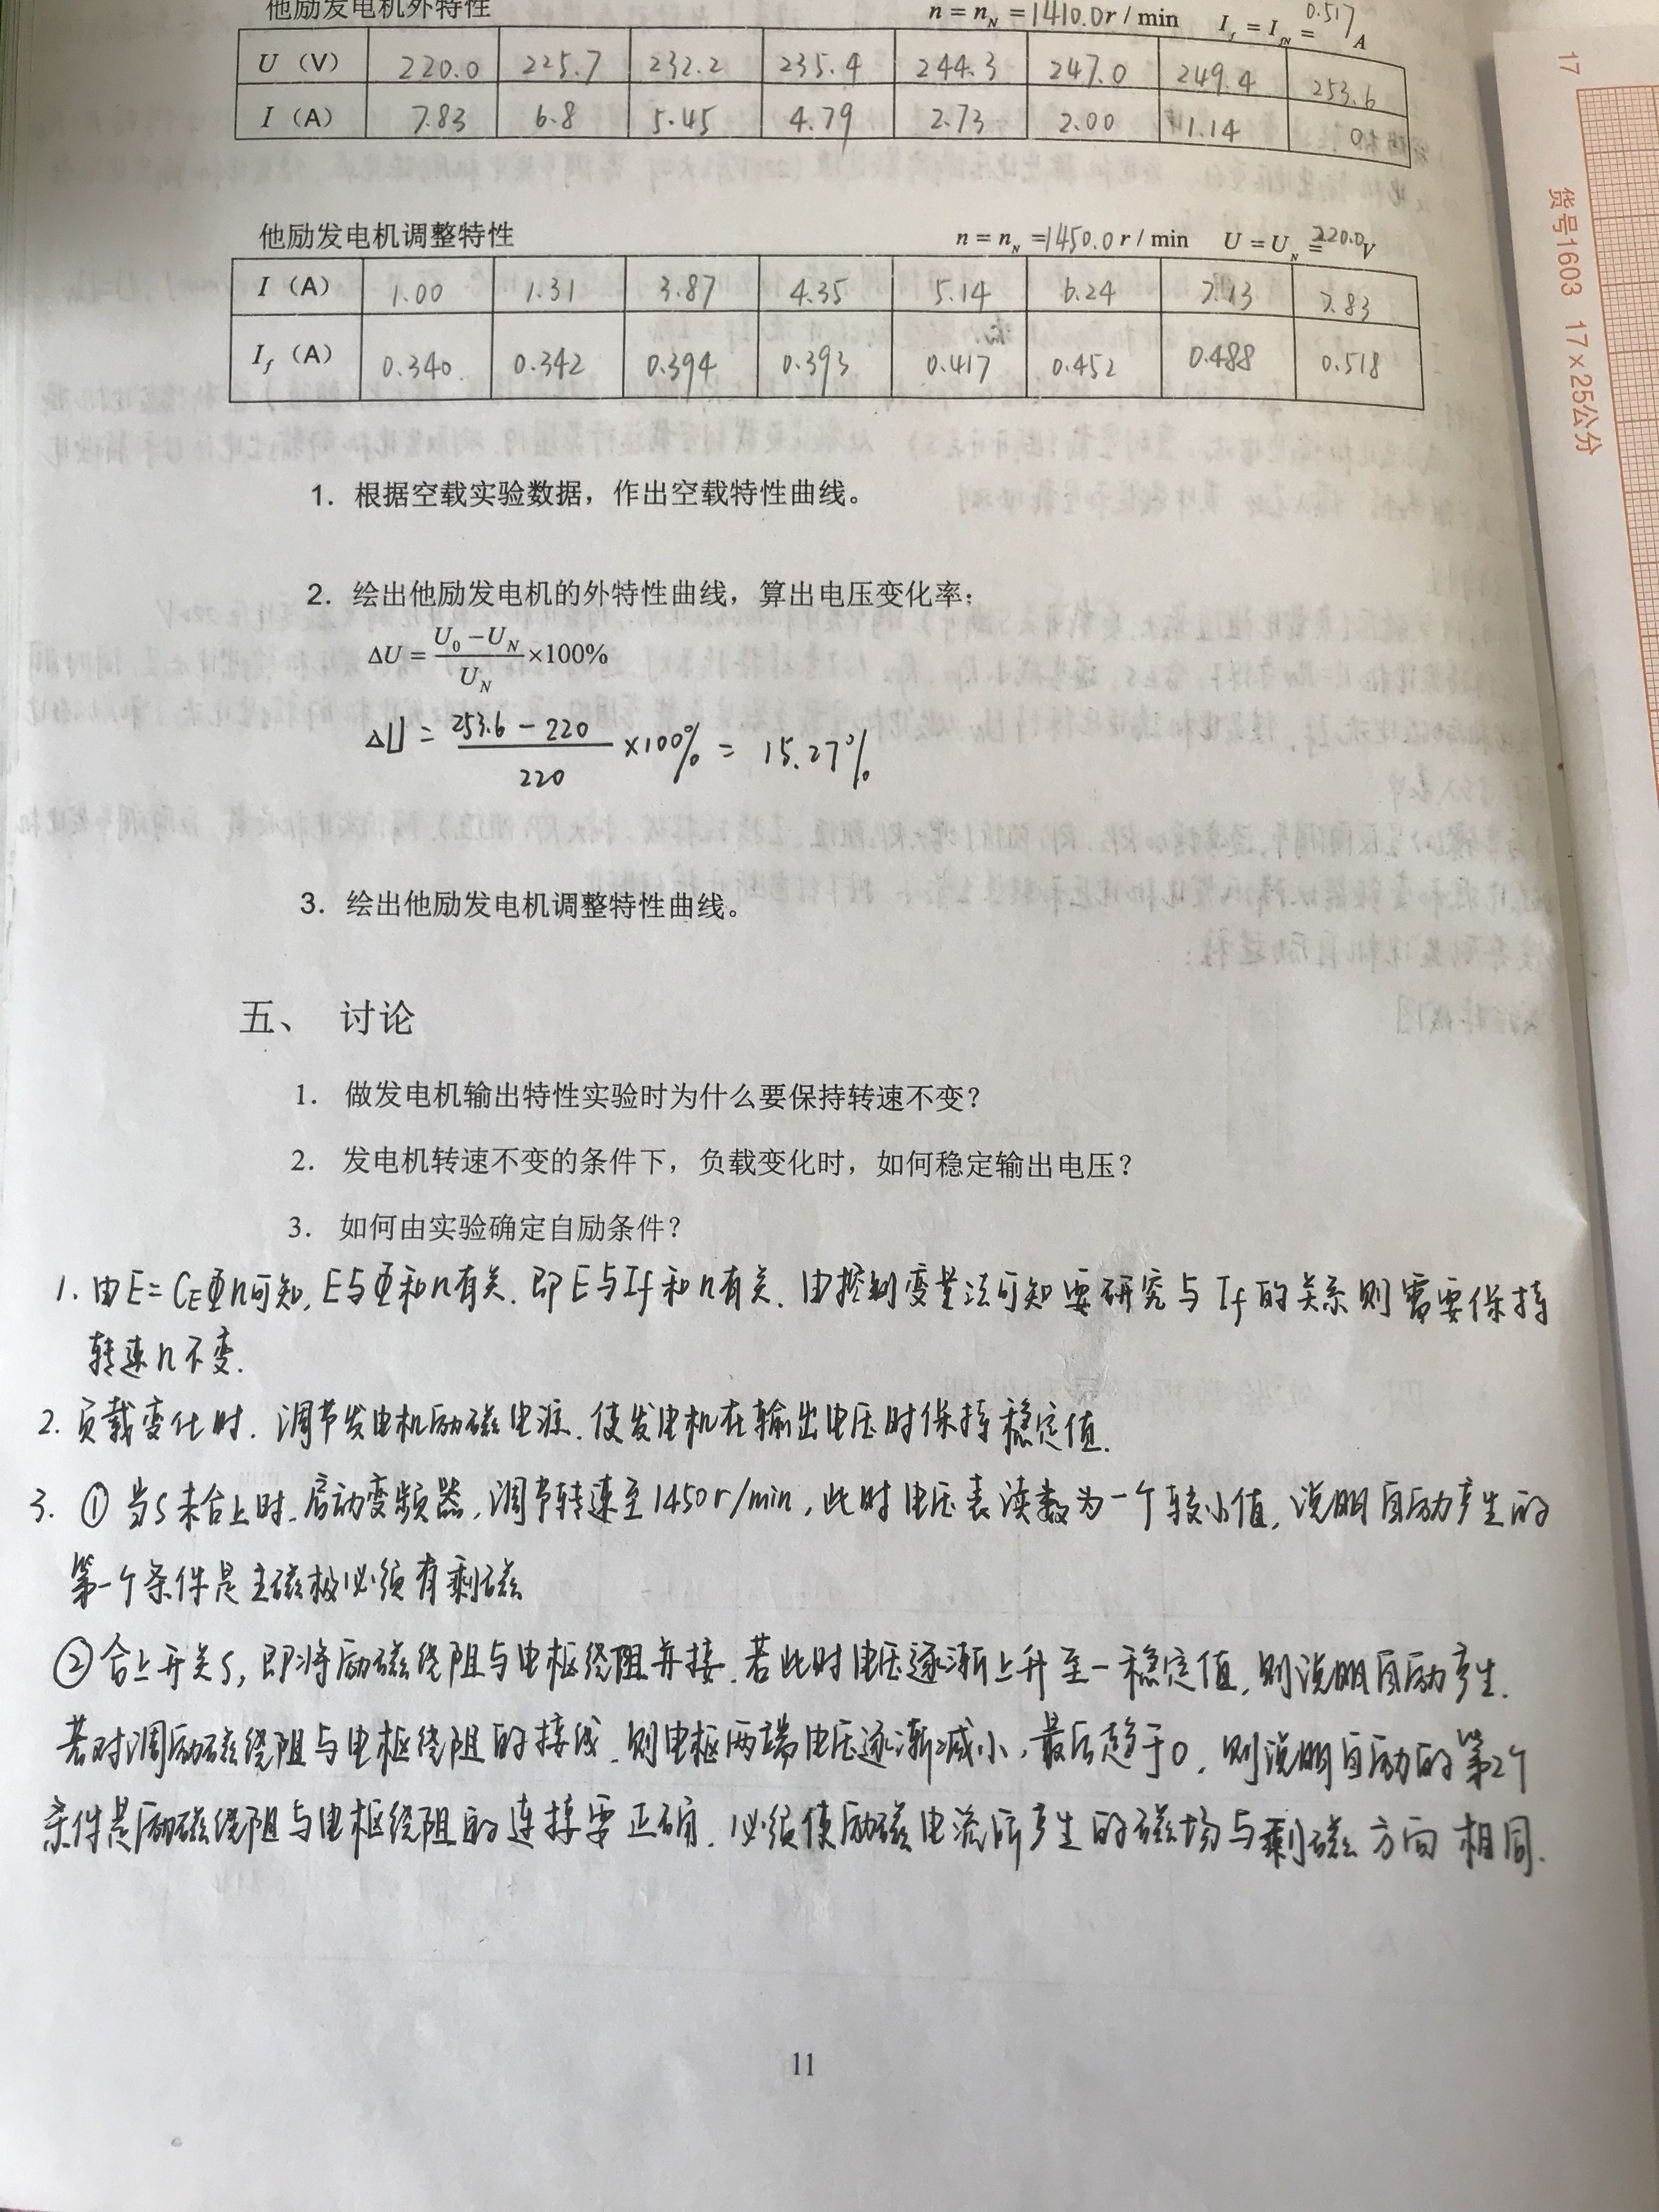 他励发电机外特性 n = n_N = 1410.0 r / min I_f = I_fN = 0.517 A
U （V） 220.0 225.7 232.2 235.4 244.3 247.0 249.4 253.6
I （A） 7.83 6.8 5.45 4.79 2.73 2.00 1.14 0
他励发电机调整特性 n = n_N = 1450.0 r / min U = U_N = 220.0 V
I （A） 1.00 1.31 3.87 4.35 5.14 6.24 7.13 7.83
I_f （A） 0.340 0.342 0.394 0.393 0.417 0.452 0.488 0.518
1. 根据空载实验数据，作出空载特性曲线。
2. 绘出他励发电机的外特性曲线，算出电压变化率；
ΔU = (U_0 − U_N) / U_N ×100%
ΔU = (253.6 − 220) / 220 ×100% = 15.27%
3. 绘出他励发电机调整特性曲线。
五、 讨论
1. 做发电机输出特性实验时为什么要保持转速不变？
2. 发电机转速不变的条件下，负载变化时，如何稳定输出电压？
3. 如何由实验确定自励条件？
1. 由E=C_EΦn可知，E与Φ和n有关．即E与If和n有关．由控制变量法可知要研究与If的关系则需要保持
转速n不变．
2. 负载变化时．调节发电机励磁电源．使发电机在输出电压时保持稳定值．
3. ①当S未合上时．启动变频器，调节转速至1450r/min，此时电压表读数为一个较小值，说明自励产生的
第一个条件是主磁极必须有剩磁
②合上开关S，即将励磁绕阻与电枢绕阻并接．若此时电压逐渐上升至一稳定值，则说明自励产生．
若对调励磁绕阻与电枢绕阻的接线．则电枢两端电压逐渐减小，最后趋于0，则说明自励的第2个
条件是励磁绕阻与电枢绕阻的连接要正确．必须使励磁电流所产生的磁场与剩磁方向相同．
11
17
货号1603 17×25公分